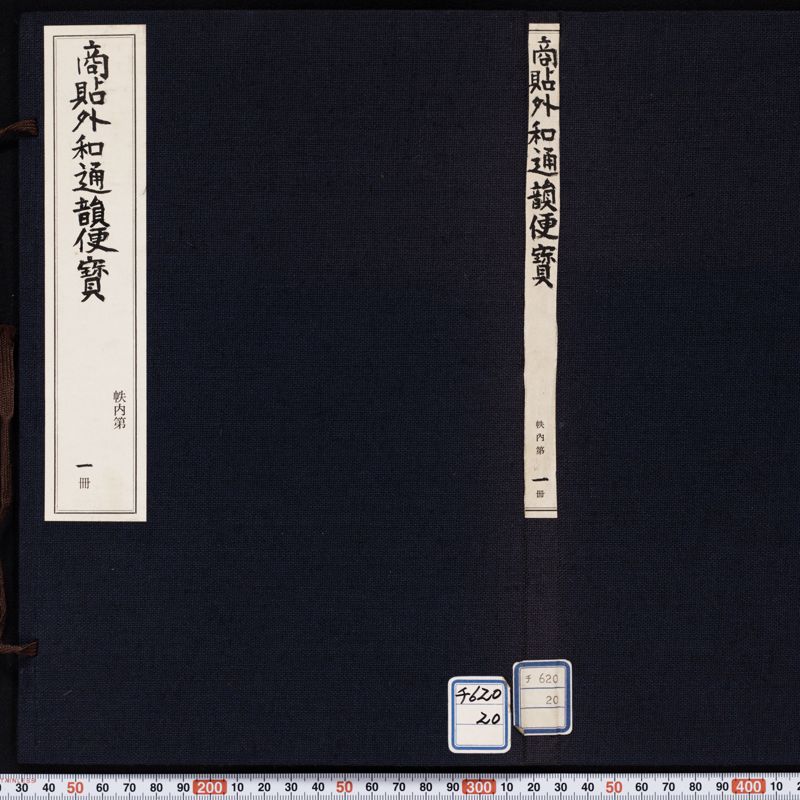 商貼外和通韻便寶
帙内第
一冊
商貼外和通韻便寶
帙内第
一冊
チ620
20
チ 620
20
30 40 50 60 70 80 90 200 10 20 30 40 50 60 70 80 90 300 10 20 30 40 50 60 70 80 90 400 10 20